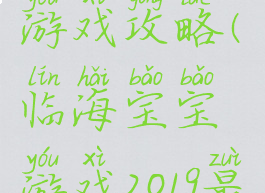 yóu xì gōng lüè
游戏攻略(
lín hǎi bǎo bǎo
临海宝宝
yóu xì zuì
游戏2019最